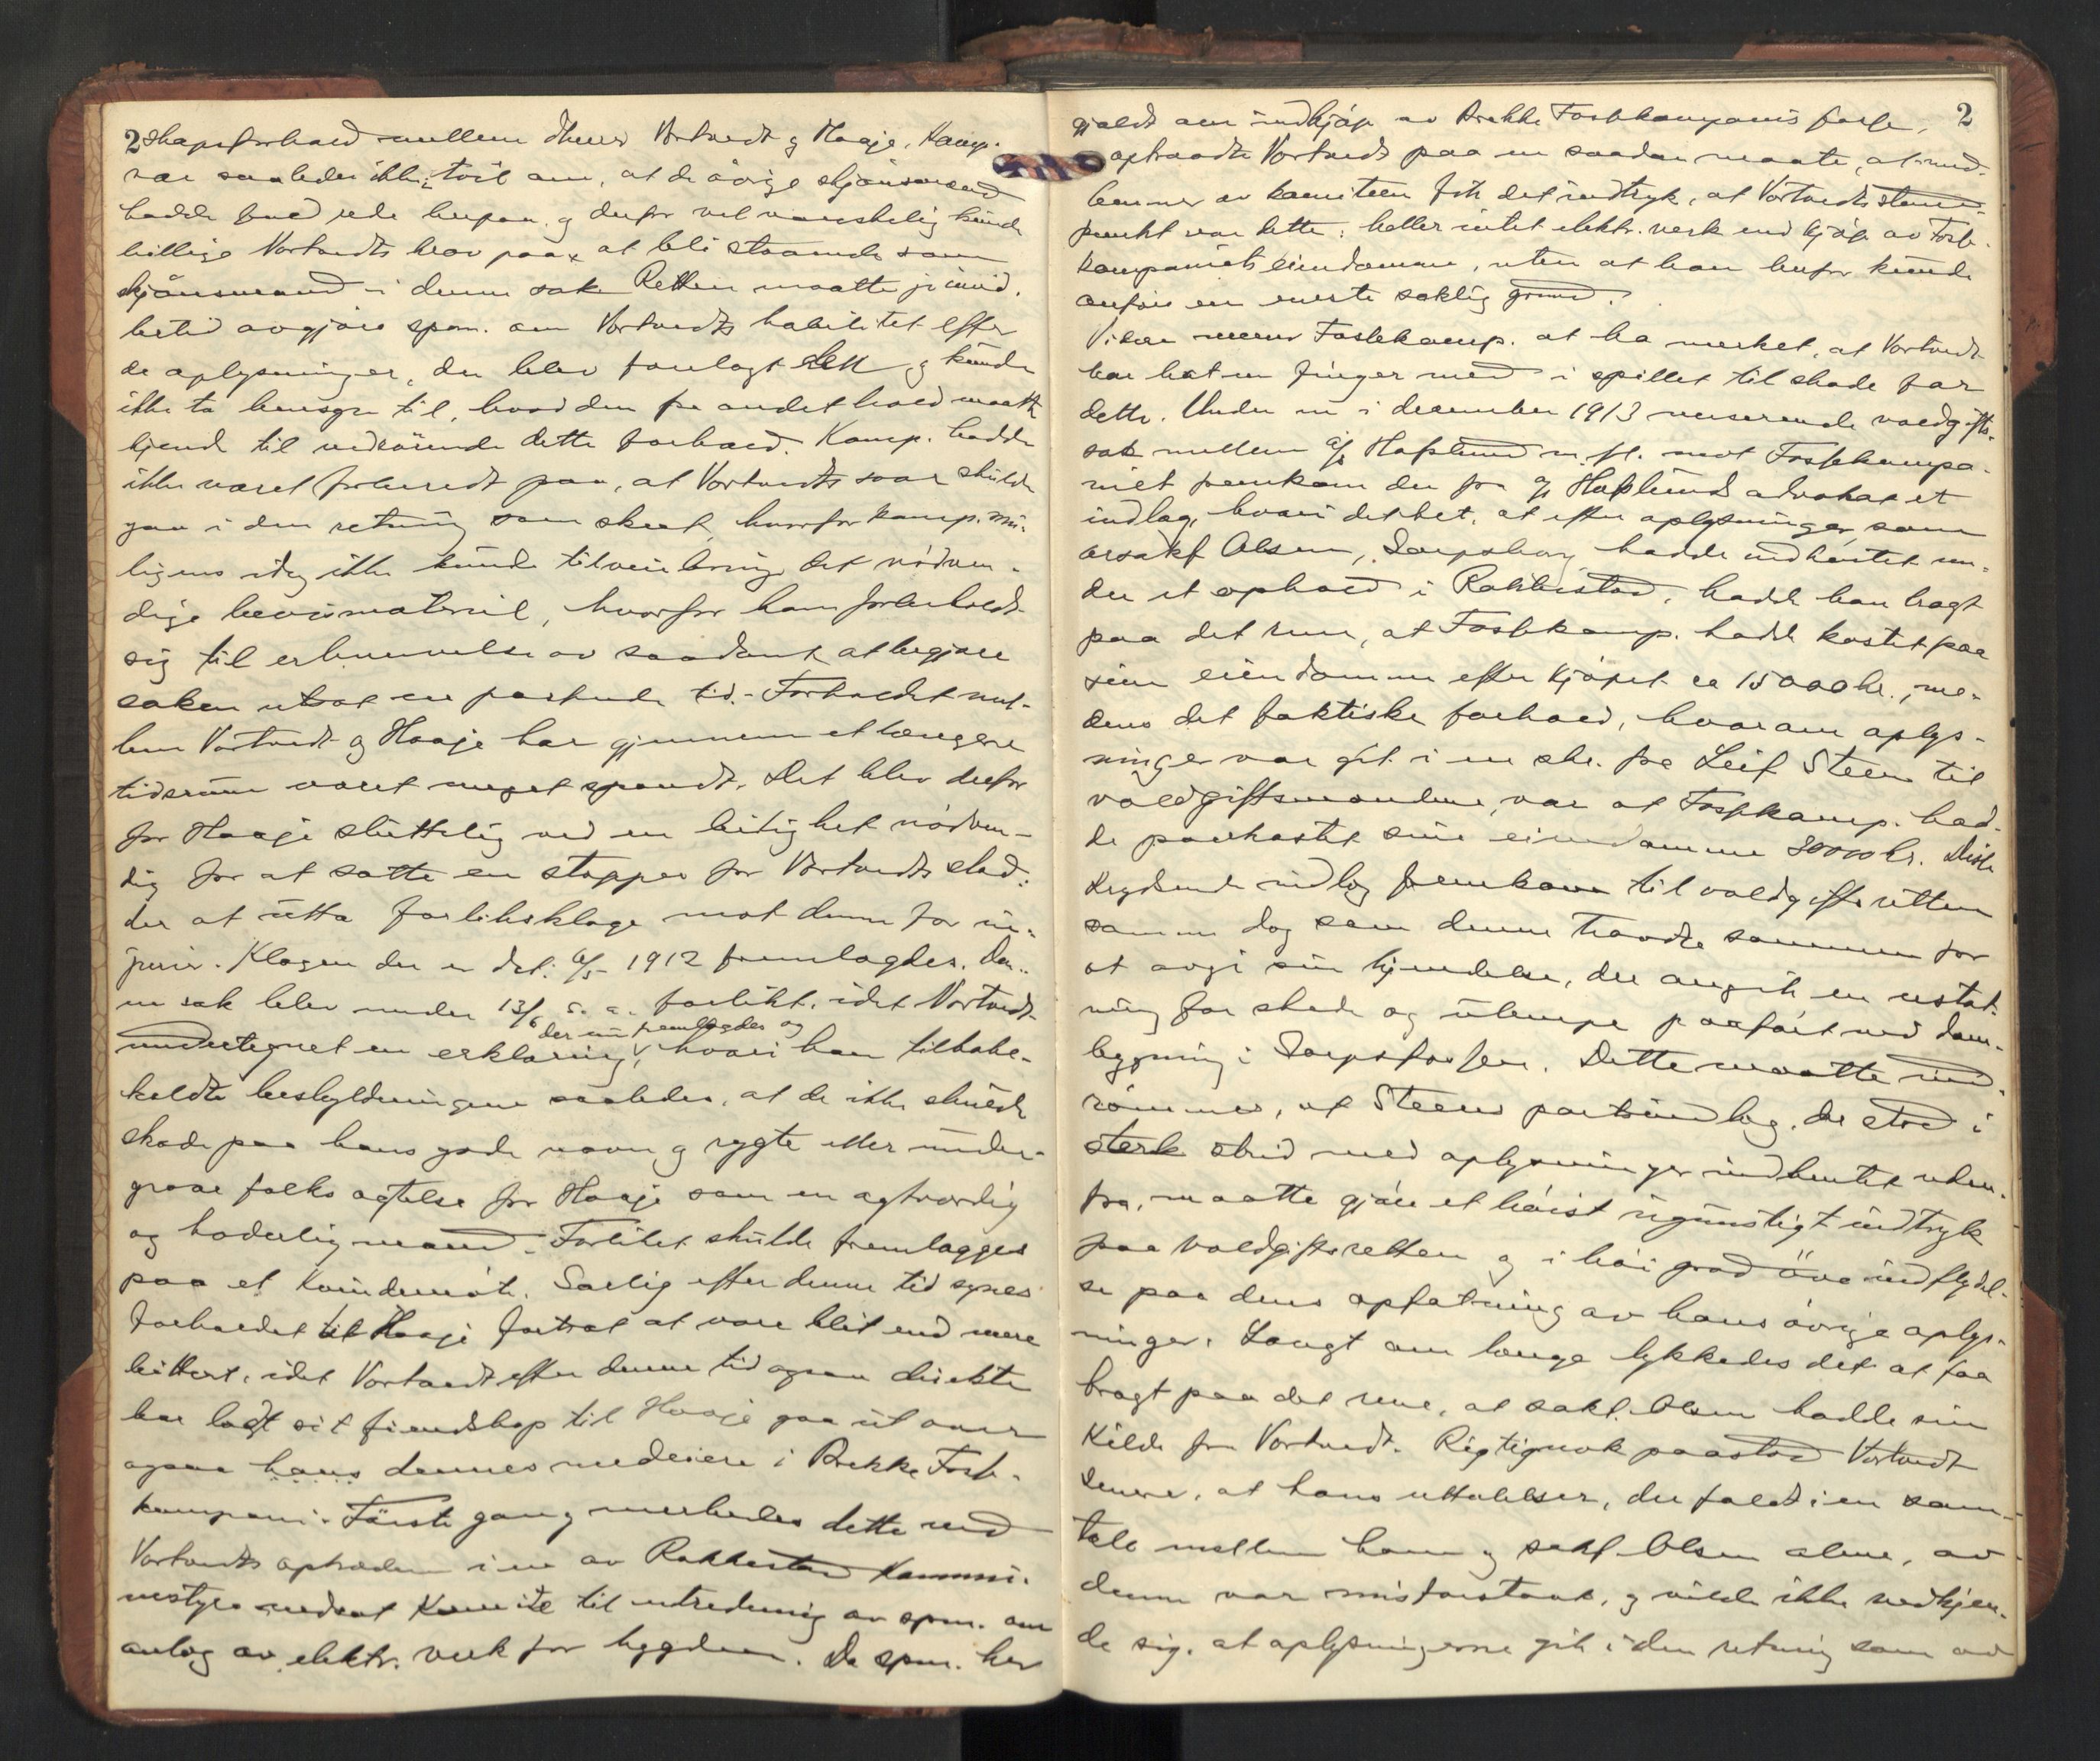 2 skapsforhold mellem dherr Vortvedt og Haaje, Komp.
var saaledes ikke i tvil om, at de øvrige skjønsmænd
hadde faaet rede herpaa og derfor vel vanskelig kunde
billige Vortvedts krav paa, at bli staaende som
skjønsmand i denne sak. Retten maatte jo imid-
lertid avgjøre spm. om Vortvedts habilitet efter
de oplysninger, der blev forelagt den og kunde
ikke ta hensyn til, hvad den fra andet hold maatte
kjende til vedrørende dette forhold. Komp. hadde
ikke været forberedt paa, at Vortvedts svar skulde
gaa i den retning som skeet, hvorfor komp. mu-
ligens idag ikke kunde tilveiebringe det nødven-
dige bevismateriel, hvorfor han forbeholdt
sig til erhvervelse av saadant at begjære
saken utsat en passende tid. - Forholdet mel-
lem Vortvedt og Haaje har gjennem et længere
tidsrum været meget spændt. Det blev derfor
for Haaje sluttelig ved en leilighet nødven-
dig for at sætte en stopper for Vortvedts slad-
der at utta forliksklage mot denne for in-
jurier. Klagen der er dat. 6/5 1912 fremlagdes. Den-
ne sak blev under 13/6 s. a. forlikt, idet Vortvedt
undertegnet en erklæring, der nu fremlagdes og hvori han tilbake-
kaldte beskyldningene saaledes, at de ikke skulde
skade paa hans gode navn og rygte eller under-
grave folks agtelse for Haaje som en agtværdig
og hæderlig mand. Forliket skulde fremlægges
paa et Komiteemøte. Særlig efter denne tid synes
forholdet til Haaje fortsat at være blit end mere
bittert, idet Vortvedt efter denne tid ogsaa direkte
har latt sit fiendskap til Haaje gaa ut over
ogsaa hans dennes medeiere i Brekke Foss-
kompani. Første gang merkedes dette ved
Vortvedts optræden i en av Rakkestad Kommu-
nestyre nedsat Komite til utredning av spm. om
anlæg av elektr. verk for bygden. Da spm. her
2
gjaldt om indkjøp av Brekke Fossekompanis fosse,
optraadte Vortvedt paa en saadan maate, at med-
lemmer av komiteen fik det indtryk, at Vortvedts stand-
punkt var dette: heller intet elektr. verk end kjøp av Fosse-
kompaniets eiendomme, uten at han herfor kunde
anføre en eneste saklig grund.
Videre mener Fossekomp. at ha merket, at Vortvedt
har hat en finger med i spillet til skade for
dette. Under en i december 1913 verserende voldgifts-
sak mellem A/S Hafslund m. fl. mot Fossekompa-
niet fremkom der fra A/S Hafslunds advokat et
indlæg, hvori det het, at efter oplysninger som
orsakf Olsen, Sarpsborg hadde indhentet un-
der et ophold i Rakkestad, hadde han bragt
paa det rene, at Fossekomp. hadde kostet paa
sine eiendomme efter kjøpet ca 15000 kr., me-
dens det faktiske forhold, hvorom oplys-
ninger var git i en skr. fra Leif Steen til
voldgiftsmændene, var at Fossekomp. had-
de paakostet sine eiendomme 80000 kr. Disse
krydsende indlæg fremkom til voldgiftsretten
samme dag som denne traadte sammen for
at avgi sin kjendelse, der angik en erstat-
ning for skade og ulempe paaført ved dam-
bygning i Sarpsfossen. Dette maatte ind-
rømmes, at Steens partsindlæg, der stod i
sterk strid med oplysninger indhentet uten-
fra, maatte gjøre et høist ugunstigt indtryk
paa voldgiftsretten og i høi grad øve indflydel-
se paa dens opfatning av hans øvrige oplys-
ninger. Langt om længe lykkedes det at faa
bragt paa det rene, at sakf. Olsen hadde sin
Kilde fra Vortvedt. Rigtignok paastod Vortvedt
senere, at hans uttalelser, der faldt i en sam-
tale mellem ham og sakf Olsen alene, av
denne var misforstaat, og vilde ikke vedkjen-
de sig, at oplysningerne gik i den retning som av